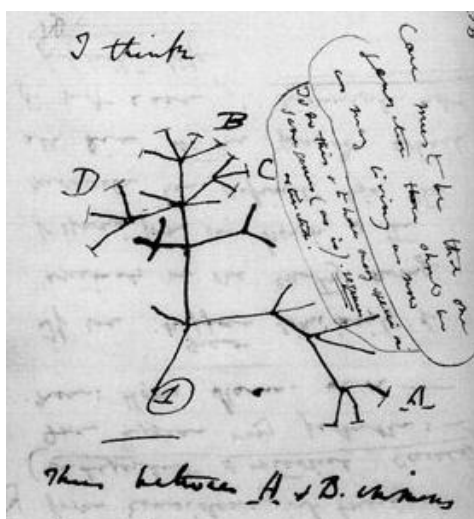 I think
Case must be that one
generation then should be
as many living as now
To do this & to have many species in
same genus (as is). requires
extinction.
B
C
D
A
1
Thus between A & B. immens